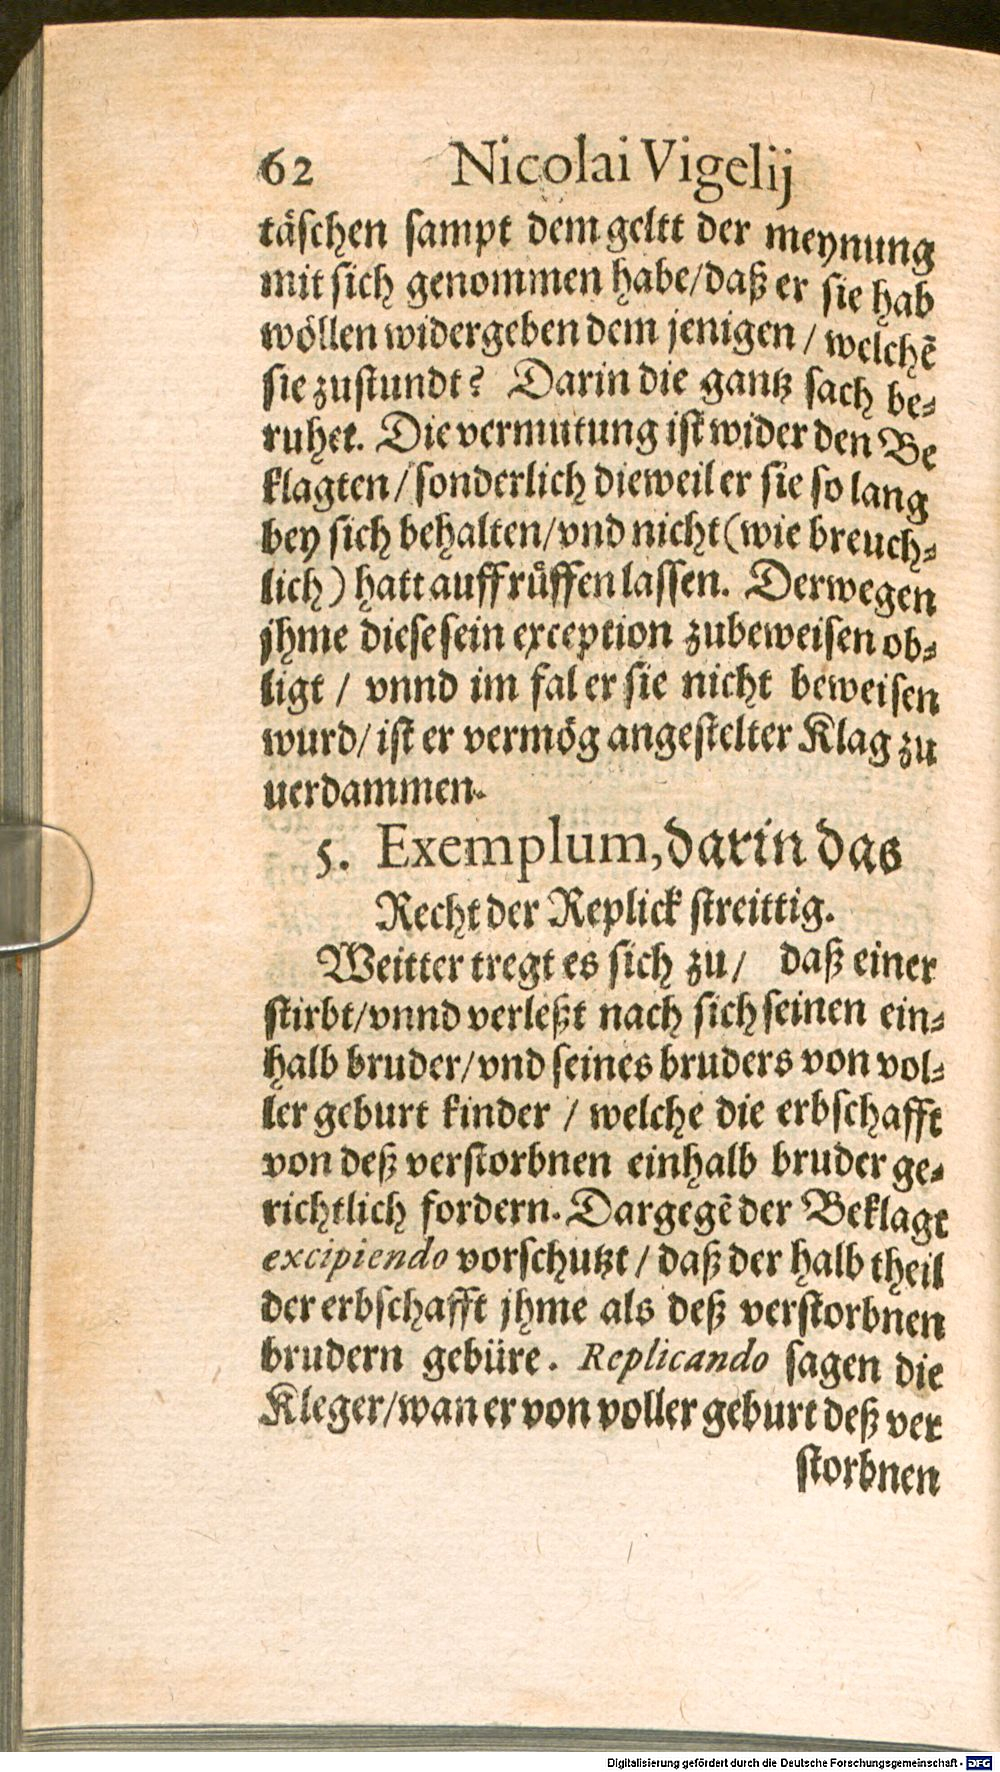 62 Nicolai Vigelij
täschen sampt dem geltt der meynung
mit sich genommen habe/daß er sie hab
wöllen widergeben dem jenigen / welchẽ
sie zustundt? Darin die gantz sach be-
ruhet. Die vermutung ist wider den Be
klagten/sonderlich dieweil er sie so lang
bey sich behalten/vnd nicht (wie breuch-
lich) hatt auffrüffen lassen. Derwegen
jhme diese sein exception zubeweisen ob-
ligt / vnnd im fal er sie nicht beweisen
wurd/ist er vermög angestelter Klag zu
uerdammen.
5. Exemplum, darin das
Recht der Replick streittig.
Weitter tregt es sich zu/ daß einer
stirbt/vnnd verleßt nach sich seinen ein-
halb bruder/vnd seines bruders von vol-
ler geburt kinder / welche die erbschafft
von deß verstorbnen einhalb bruder ge-
richtlich fordern. Dargegẽ der Beklagt
excipiendo vorschutzt / daß der halb theil
der erbschafft jhme als deß verstorbnen
brudern gebüre. Replicando sagen die
Kleger/wan er von voller geburt deß ver
storbnen
Digitalisierung gefördert durch die Deutsche Forschungsgemeinschaft - DFG